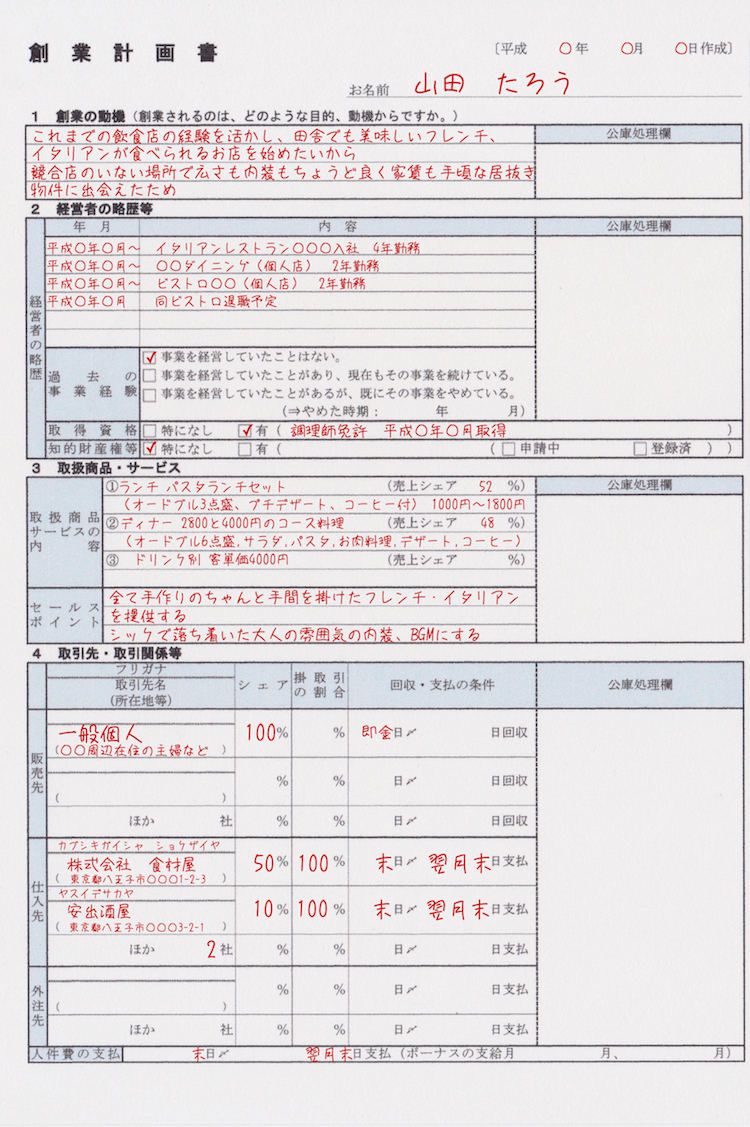 創業計画書
〔平成 〇年 〇月 〇日作成〕
お名前 山田 たろう
1 創業の動機（創業されるのは、どのような目的、動機からですか。）
公庫処理欄
これまでの飲食店の経験を活かし、田舎でも美味しいフレンチ、
イタリアンが食べられるお店を始めたいから
競合店のいない場所で広さも内装もちょうど良く家賃も手頃な居抜き
物件に出会えたため
2 経営者の略歴等
年 月 内 容 公庫処理欄
経営者の略歴
平成〇年〇月〜 イタリアンレストラン〇〇〇入社 4年勤務
平成〇年〇月〜 〇〇ダイニング（個人店） 2年勤務
平成〇年〇月〜 ビストロ〇〇（個人店） 2年勤務
平成〇年〇月 同ビストロ退職予定
過去の事業経験
☑事業を経営していたことはない。
□事業を経営していたことがあり、現在もその事業を続けている。
□事業を経営していたことがあるが、既にその事業をやめている。
（⇒やめた時期： 年 月）
取得資格 □特になし ☑有（ 調理師免許 平成〇年〇月取得 ）
知的財産権等 ☑特になし □有（ （ □申請中 □登録済 ） ）
3 取扱商品・サービス
公庫処理欄
取扱商品サービスの内容
①ランチ パスタランチセット （売上シェア 52 %）
（オードブル3点盛、プチデザート、コーヒー付） 1000円〜1800円
②ディナー 2800と4000円のコース料理 （売上シェア 48 %）
（オードブル6点盛,サラダ,パスタ,お肉料理,デザート,コーヒー）
③ ドリンク別 客単価4000円 （売上シェア %）
セールスポイント
全て手作りのちゃんと手間を掛けたフレンチ・イタリアン
を提供する
シックで落ち着いた大人の雰囲気の内装、BGMにする
4 取引先・取引関係等
フリガナ
取引先名
（所在地等）
シェア 掛取引の割合 回収・支払の条件 公庫処理欄
販売先
一般個人 100% % 即金日〆 日回収
（〇〇周辺在住の主婦など ）
% % 日〆 日回収
（ ）
ほか 社 % % 日〆 日回収
仕入先
カブシキガイシャ ショクザイヤ
株式会社 食材屋 50% 100% 末日〆 翌月末日支払
（ 東京都八王子市〇〇〇1-2-3 ）
ヤスイデサカヤ
安出酒屋 10% 100% 末日〆 翌月末日支払
（ 東京都八王子市〇〇〇3-2-1 ）
ほか 2社 % % 日〆 日支払
外注先
% % 日〆 日支払
（ ）
ほか 社 % % 日〆 日支払
人件費の支払 末日〆 翌月末日支払（ボーナスの支給月 月、 月）